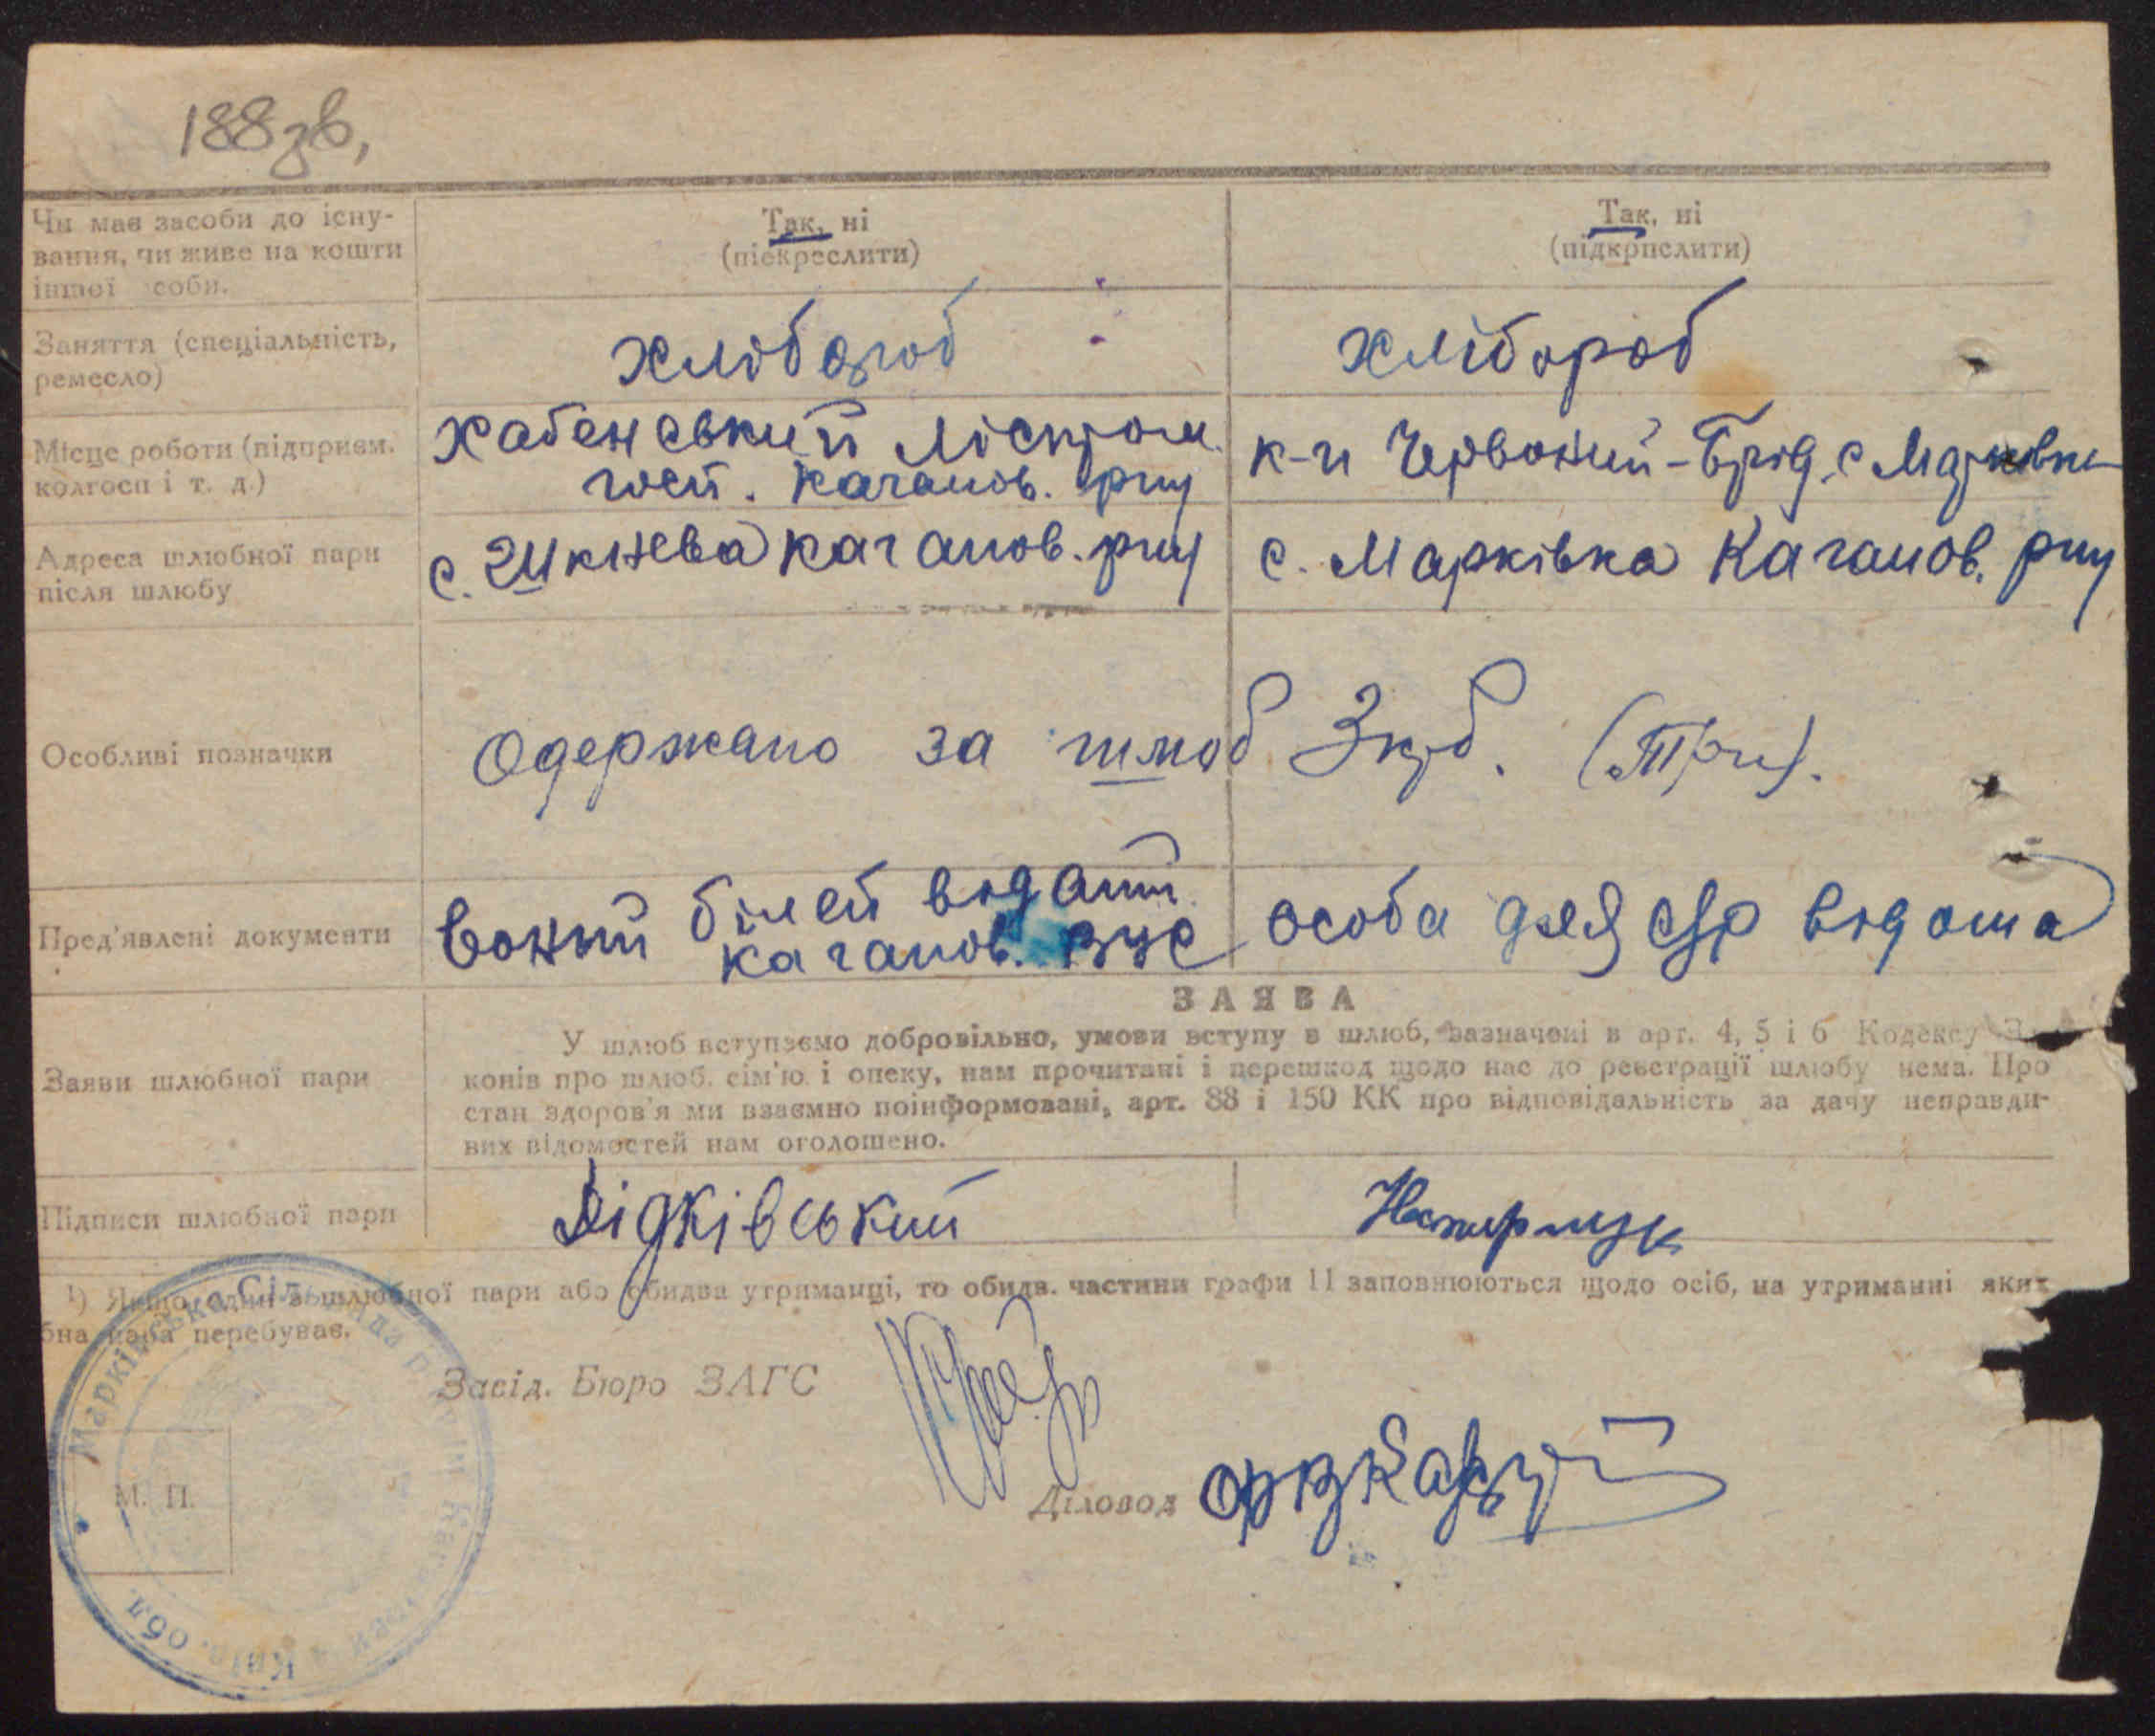 188зв,
Чи має засоби до існу-
вання, чи живе на кошти
іншої особи.
Так, ні
(піекреслити)
Так, ні
(підкрпслити)
Заняття (спеціальність,
ремесло)
хлібороб
хлібороб
Місце роботи (підприєм.
колгосп і т. д.)
Хабенський Ліспром.
госп. Каганов. р-ну
к-п Червоний-Брід с Марківка
Адреса шлюбної пари
після шлюбу
с. Шкнева Каганов. р-ну
с. Марківка Каганов. р-ну
Особливі позначки
Одержано за шлюб 3 крб. (Три).
Пред'явлені документи
Воєний білет виданий
Каганов. РВК
особа для с/р видана
ЗАЯВА
Заяви шлюбної пари
У шлюб вступаємо добровільно, умови вступу в шлюб, зазначені в арт. 4, 5 і 6 Кодексу За-
конів про шлюб. сім'ю і опеку, нам прочитані і перешкод щодо нас до реєстрації шлюбу нема. Про
стан здоров'я ми взаємно поінформовані, арт. 88 і 150 КК про відповідальність за дачу неправди-
вих відомостей нам оголошено.
Підписи шлюбної пари
Дідківський
Нестерчук
¹) Якщо один з шлюбної пари або обидва утриманці, то обидв. частини графи 11 заповнюються щодо осіб, на утриманні яких
бна пара перебуває.
Завід. Бюро ЗАГС
Діловод
М. П.
Марківська Сільрада
Київ. обл.